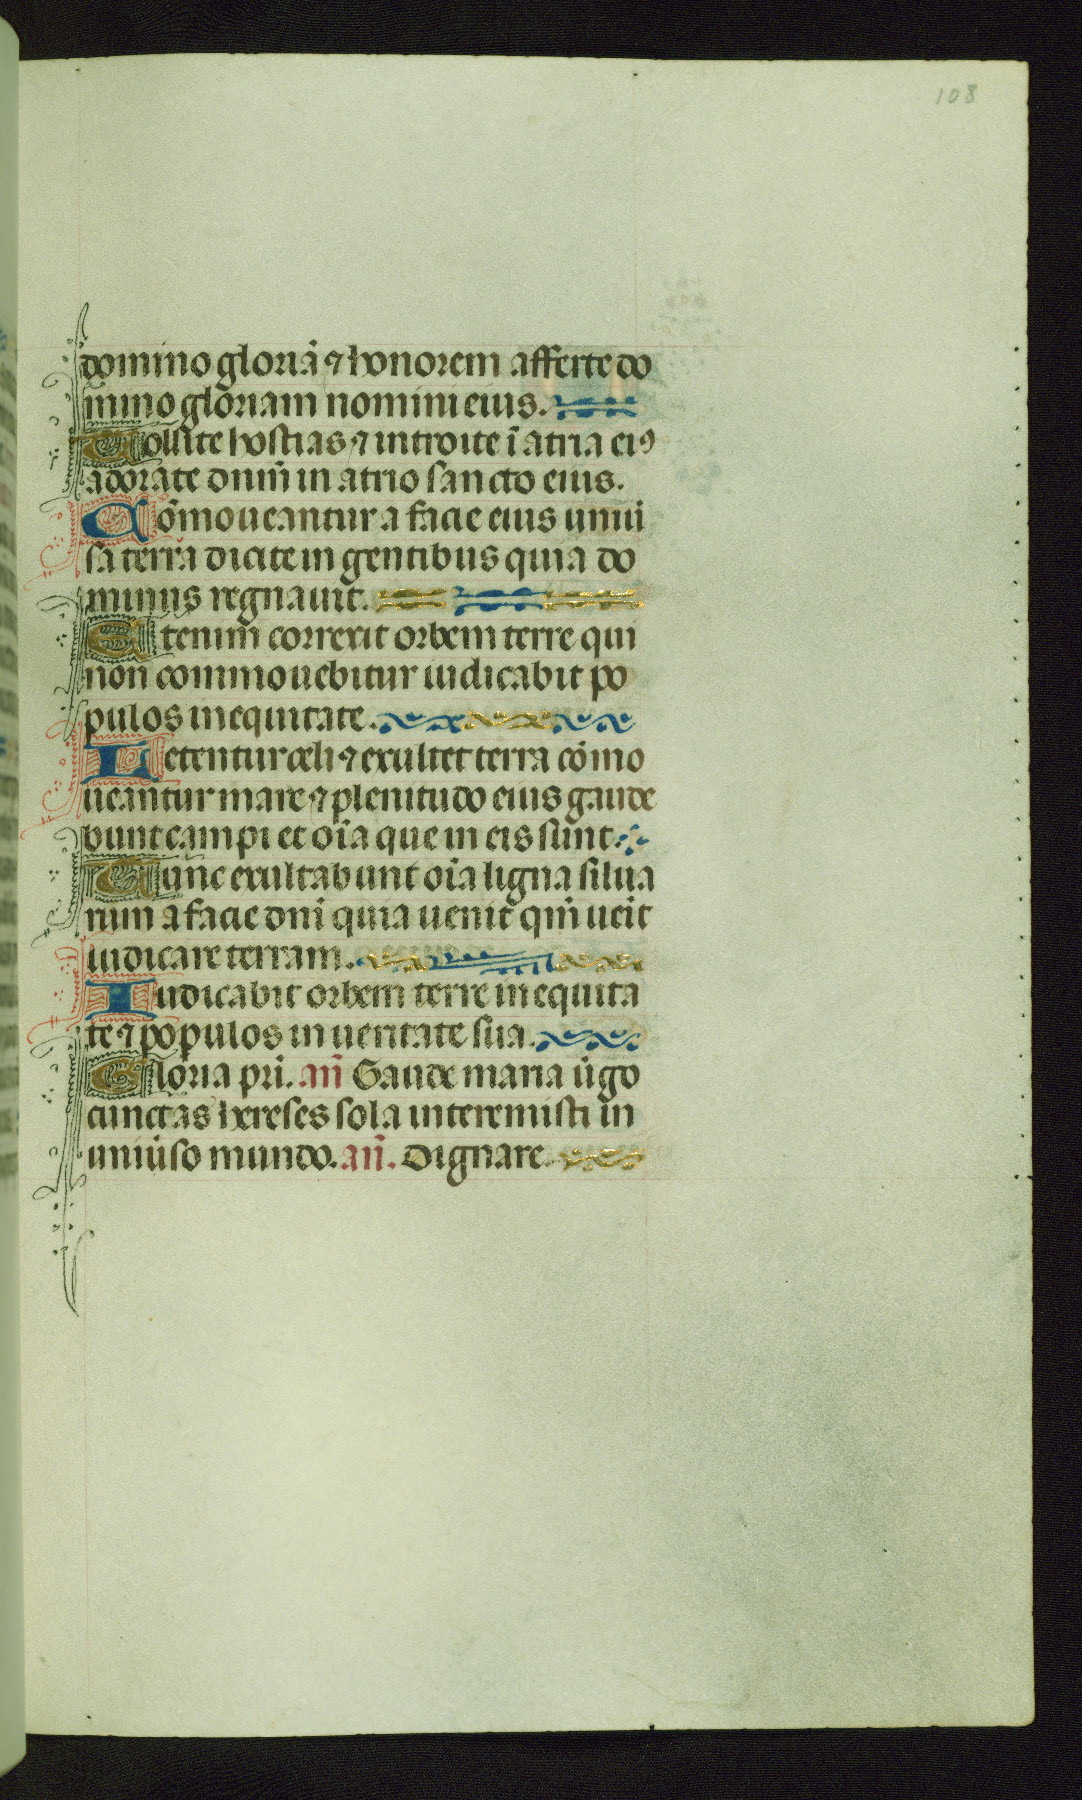 108
domino gloriā ⁊ honorem afferte do
mino gloriam nomini eius.
Tollite hostias ⁊ introite ī atria eiꝯ
adorate dnm̄ in atrio sancto eius.
Cōmoueantur a facie eius uniu̅
sa terra dicite in gentibus quia do
minus regnauit.
Etenim correxit orbem terre qui
non commouebitur iudicabit po
pulos in equitate.
Letentur celi ⁊ exultet terra cōmo
ueantur mare ⁊ plenitudo eius gaude
bunt campi et oīa que in eis sunt.
Tunc exultabunt oīa ligna silua
rum a facie dnī quia uenit qm̄ ueīt
iudicare terram.
Iudicabit orbem terre in equita
te ⁊ populos in ueritate sua.
Gloria pri. an̄ Gaude maria ūgo
cunctas hereses sola interemisti in
uniūso mundo. an̄. Dignare.